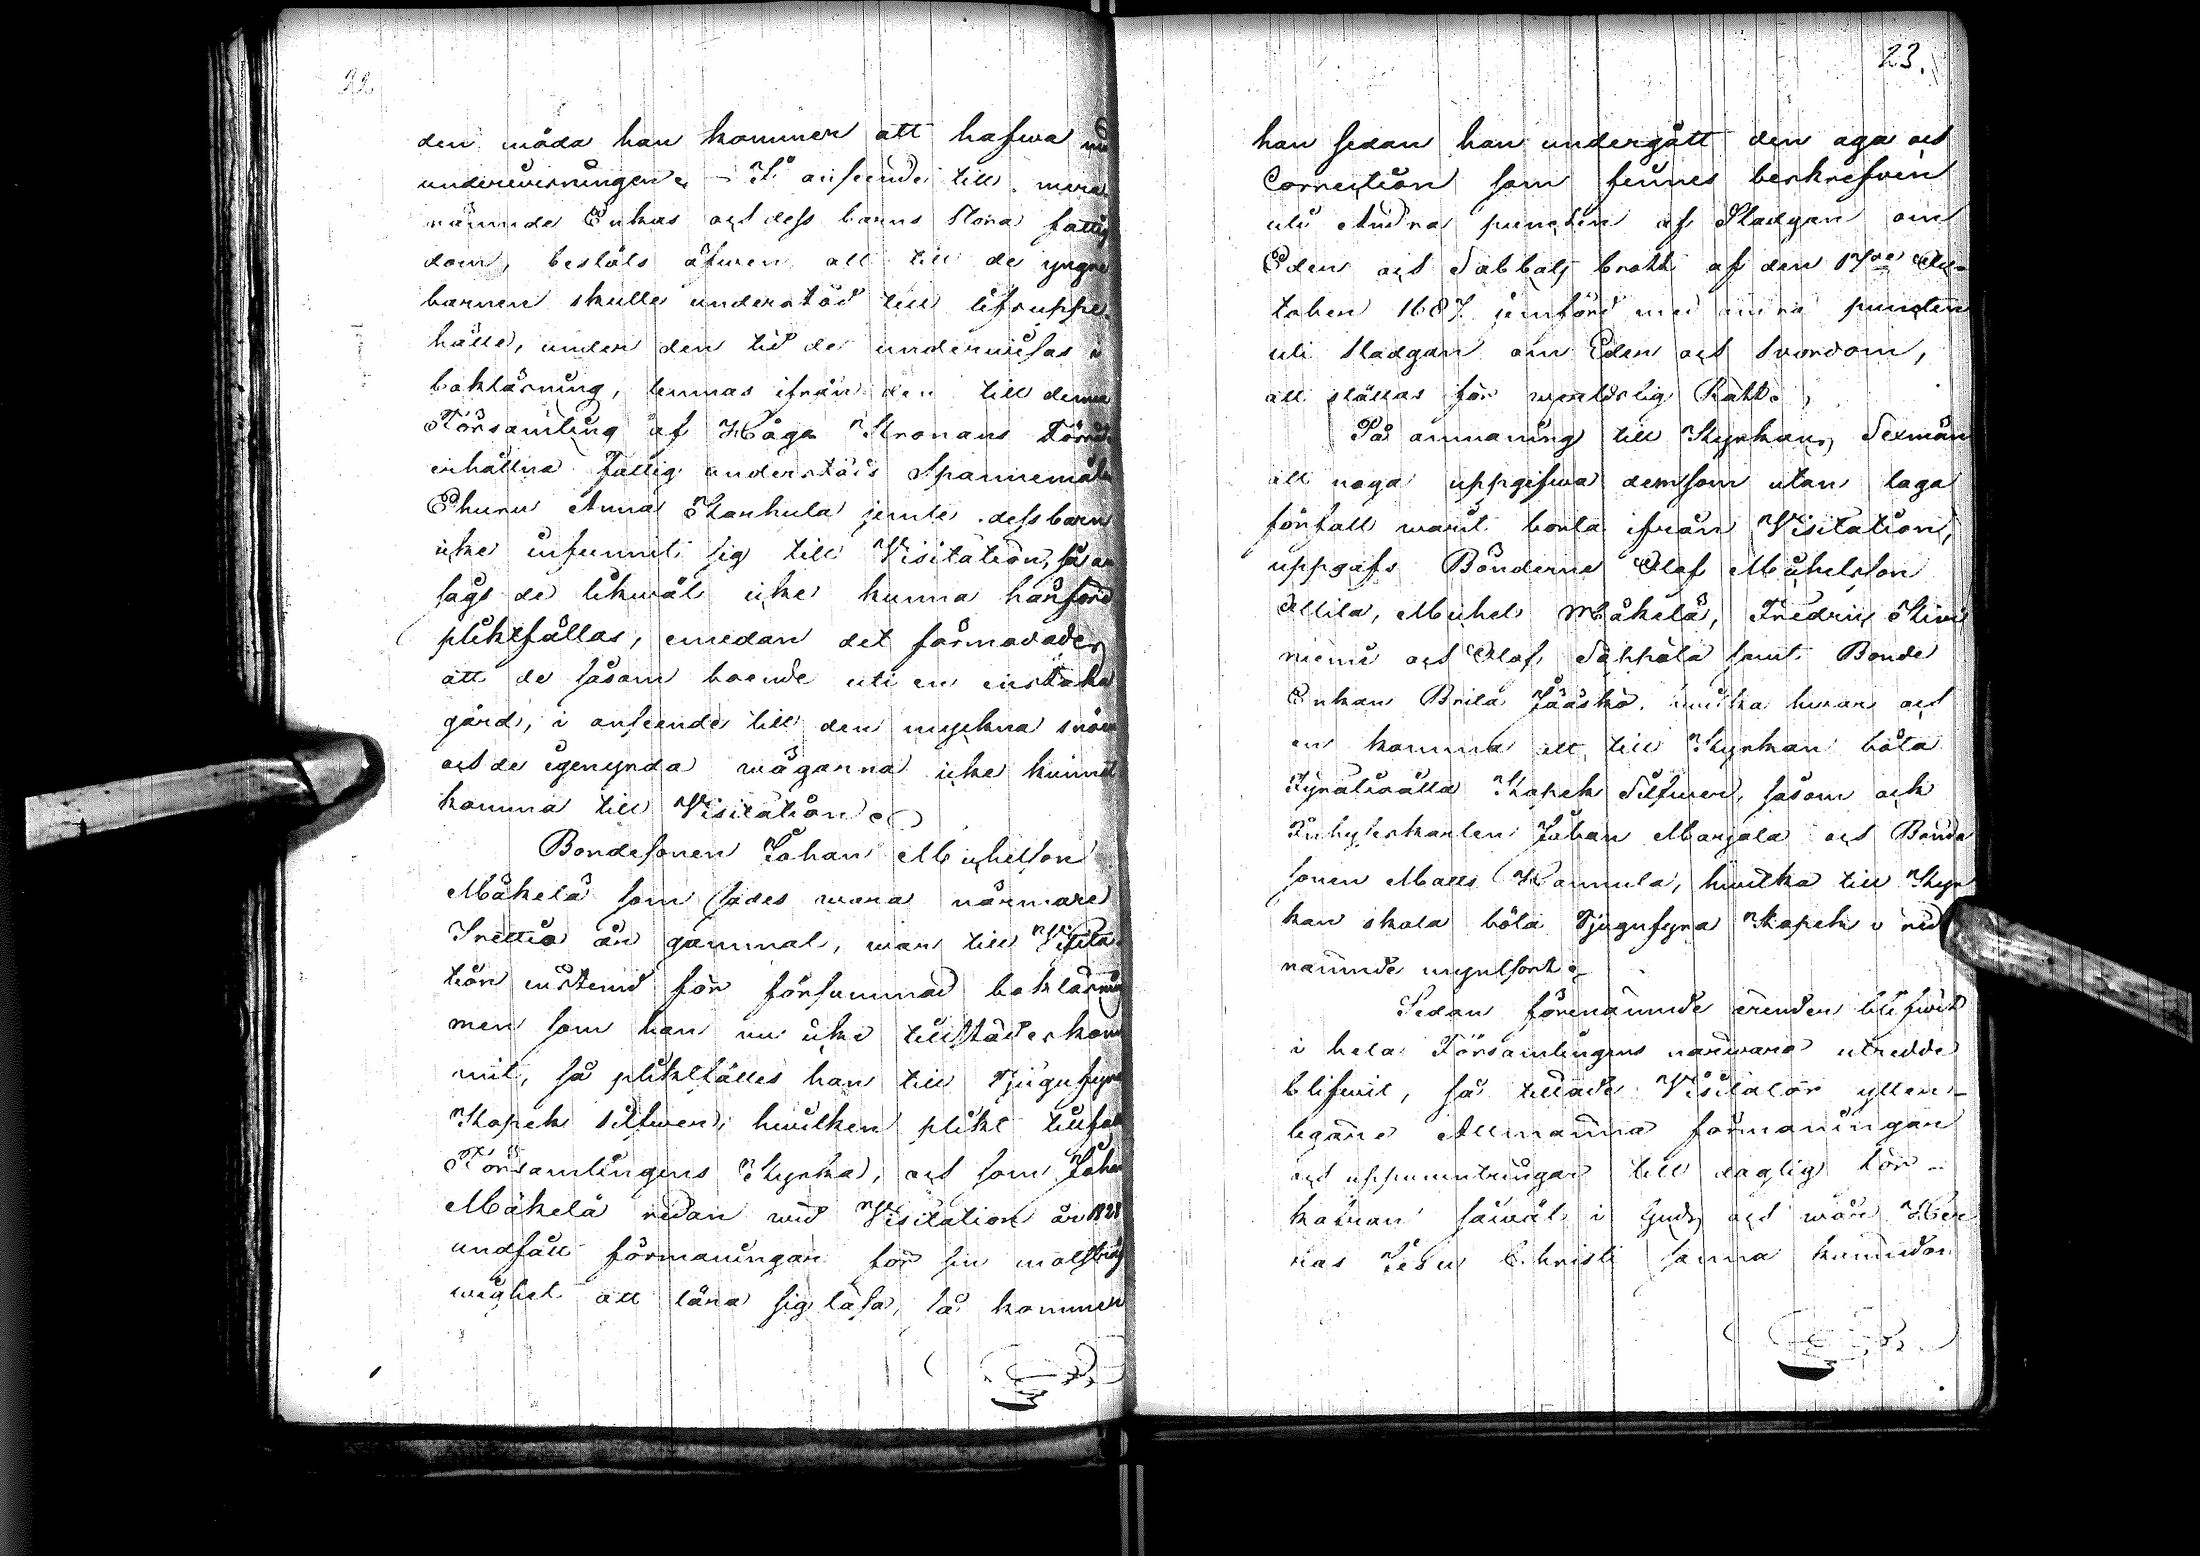 22
den möda han kommer att hafwa
underwisningen. – I anseende till mera
nämnde Enkas och dess barns stora fattig
dom, beslöts äfwen att till de yngre
barnen skulle understöd till lifsuppe-
hälle, under den tid de underwisas i
bokläsning, lemnas ifrån den till denna
Församling af Höga Kronans
erhållna Fattig understöds Spannemåle
Ehuru Anna Karhula jemte dess barn
icke infunnit sig till Visitation, så an
sågs de likwäl icke kunna härföre
pliktfällas, emedan det förmodades
att de såsom boende uti en enstaka
gård, i anseende till den myckna snön
och de igenyrda wägarna icke kunnat
komma till Visitation.
Bondesonen Johan Michelson
Mäkelä som sades wara närmare
Trettio år gammal, war till Visita
tion instemd för försummad bokläsning
men som han nu icke tillstädes kom
mit, så pliktfälles han till Tjugufyra
Kopek silfwer, hwilken plikt tillfal
Församlingens Kyrka, och som Johan
Mäkelä redan wid Visitation år 1828
undfått förmaningar för sin motsträf
wighet att lära sig läsa, så kommer
23.
han sedan han undergått den aga och
Correction som finnes beskrefven
uti Andra puncten af Stadgan om
Eden och Sabbats brott af den 17de Oc-
tober 1687 jemförd med andra puncten
uti Stadgan om Eder och svordom,
att ställas för werldslig Rätt.
På anmaning till Kyrkans Sexmän
att noga uppgifwa dem som utan laga
förfall warit borta ifrån Visitation,
uppgafs Bönderne Olof Michelson
Ollila, Michel Mäkelä, Fredric Kivi
niemi och Olof Säkkälä samt Bonde
Enkan Brita Jääskö, hwilka hwar och
en komma att till Kyrkan böta
Fyratioåtta Kopek Silfwer, såsom ock
Inhyseskarlen Johan Marjala och Bonde
sonen Matts Hannula, hwilka till Kyr
kan skola böta Tjugufyra Kopek i
nämnde myntsort.
Sedan förenämnde ärenden blifwit
i hela Församlingens närwaro utredde
blifwit, så tillade Visitator ytter-
ligare Allmänna förmaningar
och uppmuntringar till daglig för-
kofran såwäl i Guds och wår Her
ras Jesu Christi sanna kunnedom